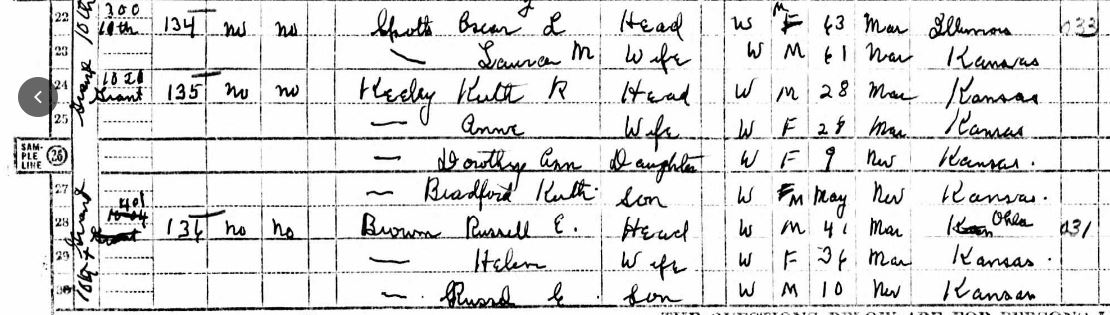 22 300 10th 134 no no Spotts Oscar L Head W M 63 Mar Illinois 033
23 — Laura M Wife W M 61 Mar Kansas
24 1020 Grant 135 no no Keeley Keith R Head W M 28 Mar Kansas
25 — Anne Wife W F 28 Mar Kansas
SAMPLE LINE 26 — Dorothy Ann Daughter W F 9 Nev Kansas.
27 — Bradford Keith Son W M May Nev Kansas.
28 401 136 no no Brown Russell E. Head W M 41 Mar Okla 031
29 — Helen Wife W F 36 Mar Kansas.
30 — Russel E. Son W M 10 Nev Kansas